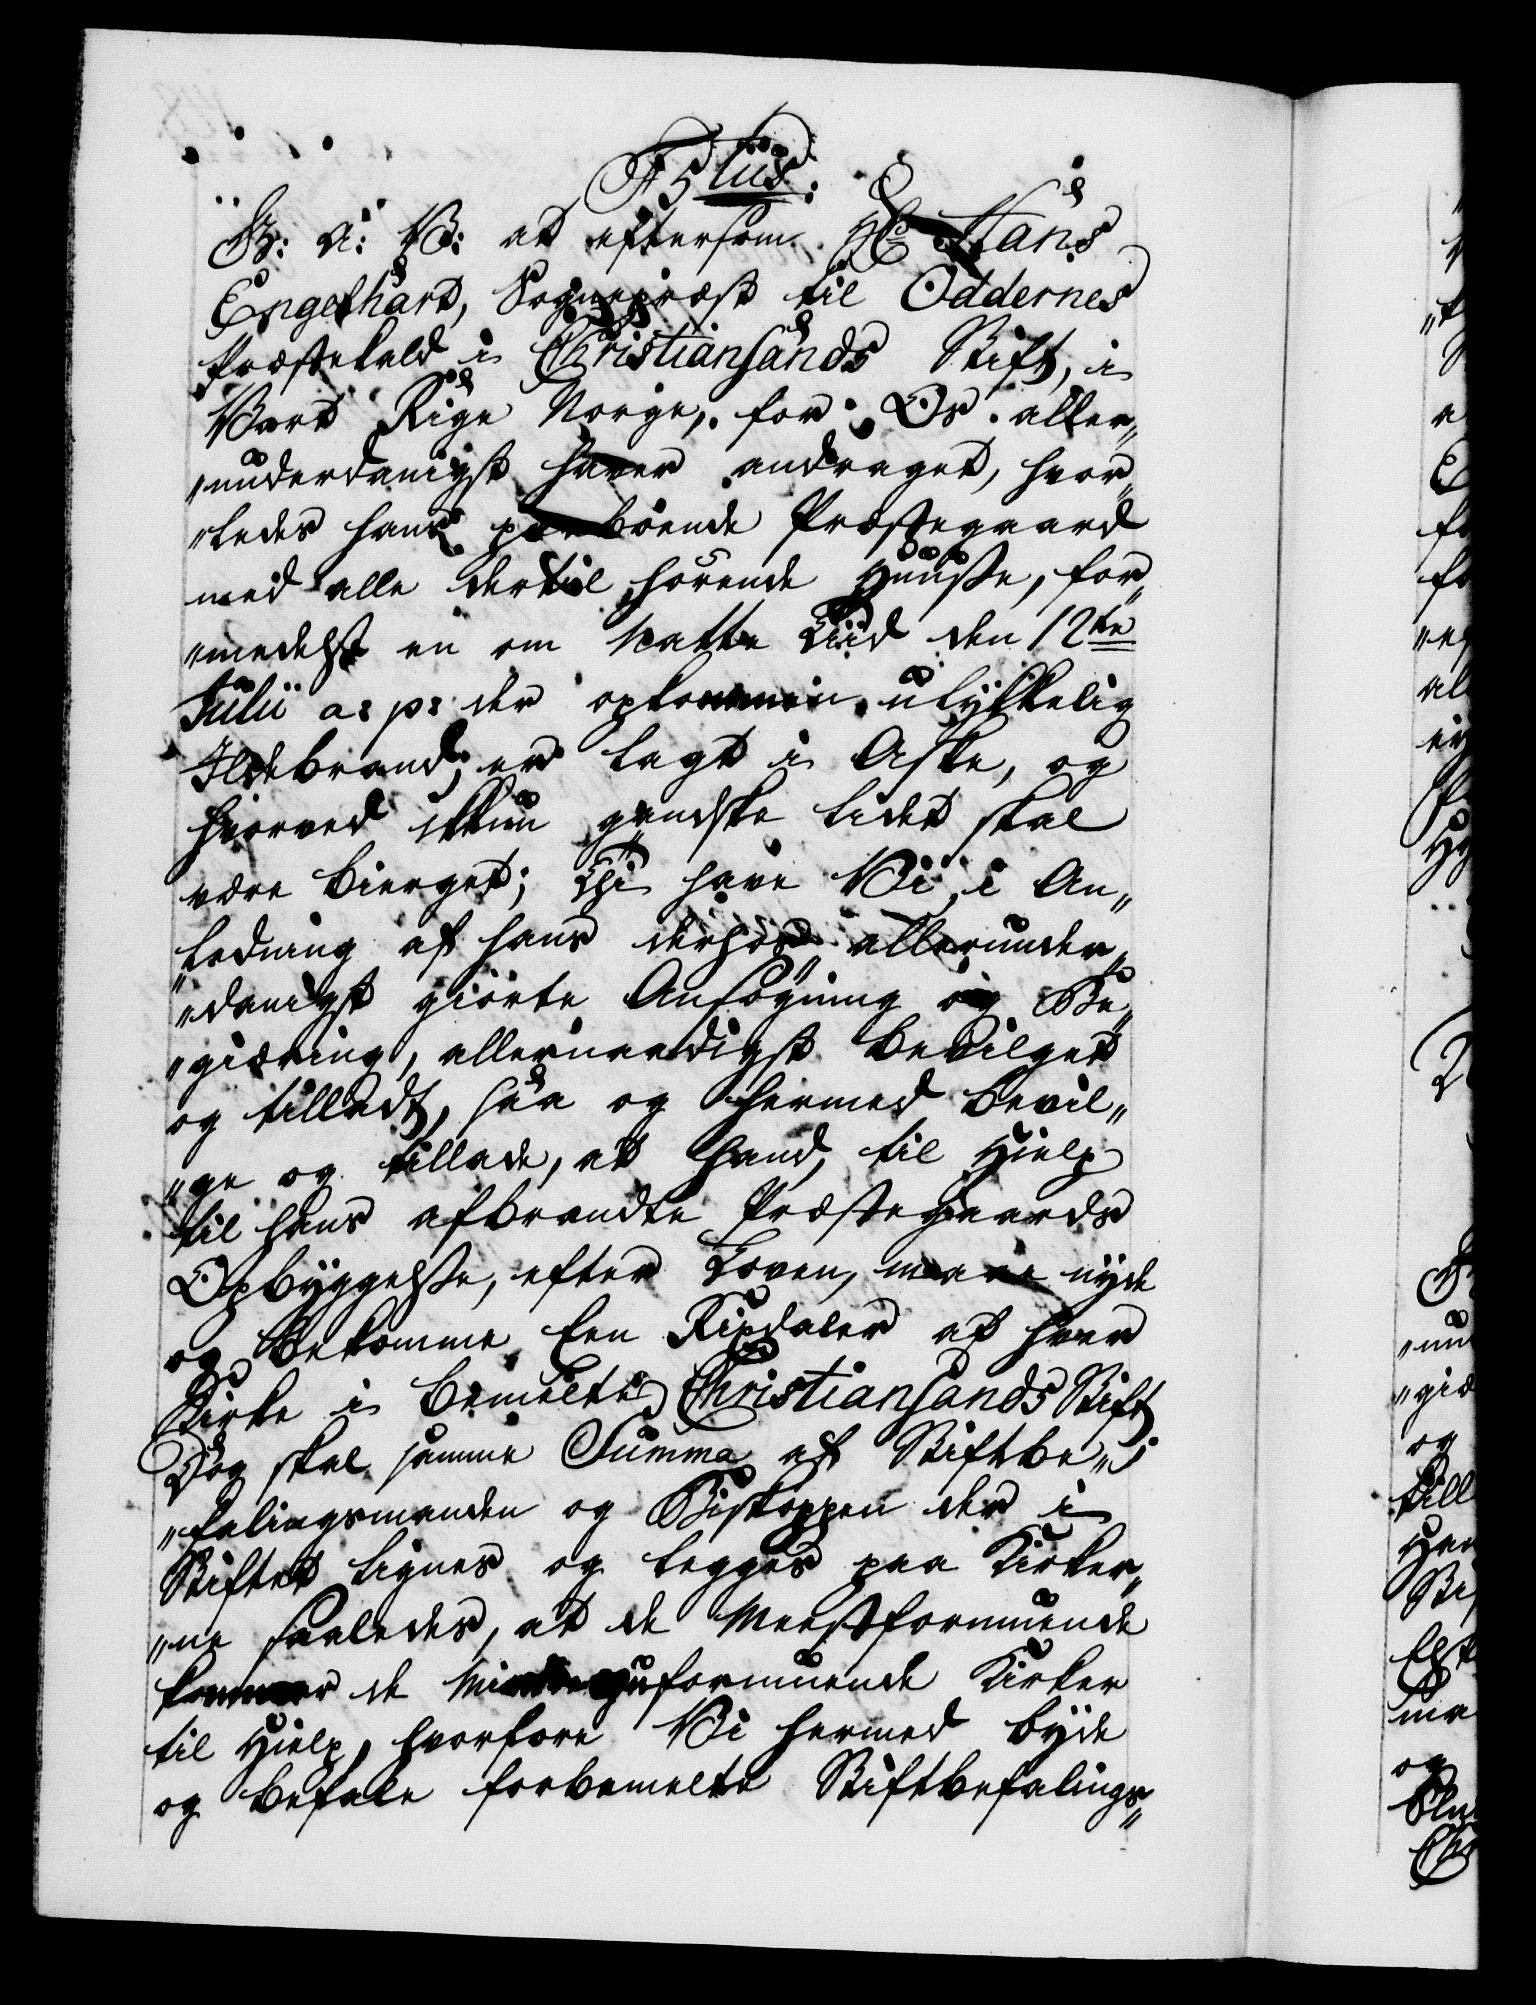 F5tus.
G: A: V: at eftersom Hr Hans
Engelhart, Sognepræst til Oddernes
Præstekald i Christiansands Stift, i
Vort Rige Norge, for Os aller„
„underdanigst haver andraget, hvor„
„ledes hans paaboende Præstegaard
med alle dertil hörende Huusse, for„
„medelst en om Natte Tiid den 12te
Julii a: p: der opkommen ulykkelig
Ildebrand, er lagt i Aske, og
hvorved ikkun gandske lidet skal
være bierget; Thi have Vi, i An„
„ledning af hans derhos allerunder„
„danigst giorte Ansögning og Be„
„giæring, allernaadigst bevilget
og tilladt, saa og hermed bevil„
„ge og tillade, at hand, til Hielp
til hans afbrændte Præstegaards
Opbyggelsse, efter Loven, maae nyde
og bekomme Een Rixdaler af hver
Kirke i bemelte Christiansands Stift
Dog skal samme Summa af Stiftbe„
„falingsmanden og Biskoppen der i
Stiftet lignes og legges paa Kirker„
„ne saaledes, at de Meestformuende
kommer de Mindreformuende Kirker
til Hielp, hvorfore Vi hermed byde
og befale forbemelte Stiftbefalings„